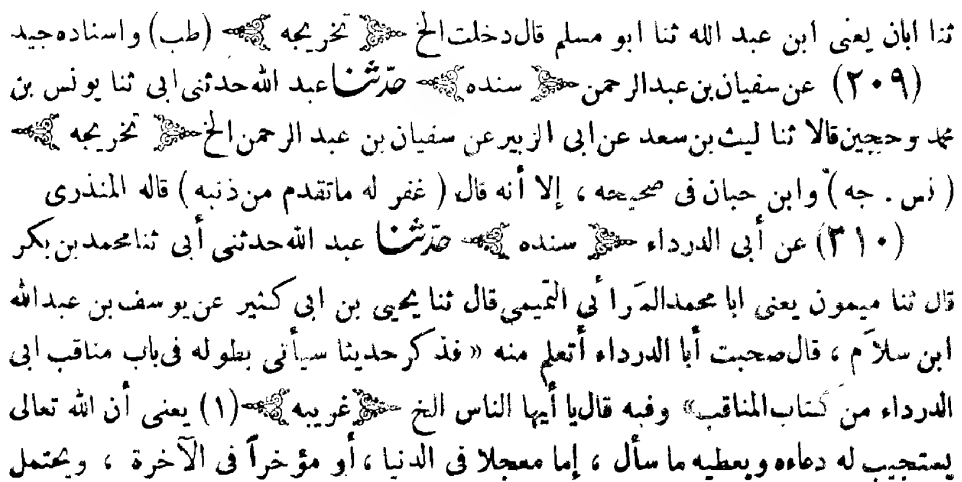 ثنا ابان يعنى ابن عبد الله ثنا ابو مسلم قال دخلت الخ ﴿ تخريجه ﴾ (طب) واسناده جيد
(٢٠٩) عن سفيان بن عبد الرحمن ﴿ سنده ﴾ حدثنا عبد الله حدثنى ابى ثنا يونس بن
محمد وحجين قالا ثنا ليث بن سعد عن ابى الزبير عن سفيان بن عبد الرحمن الخ ﴿ تخريجه ﴾
(نس . جه) وابن حبان فى صحيحه ، إلا أنه قال (غفر له ماتقدم من ذنبه) قاله المنذرى
(٣١٠) عن أبى الدرداء ﴿ سنده ﴾ حدثنا عبد الله حدثنى أبى ثنا محمد بن بكر
قال ثنا ميمون يعنى ابا محمد المَرائى التميمى قال ثنا يحيى بن ابى كثير عن يوسف بن عبد الله
ابن سلاَم ، قال صحبت أبا الدرداء أتعلم منه « فذكر حديثا سيأتى بطوله فى باب مناقب ابى
الدرداء من كتاب المناقب» وفيه قال يا أيها الناس الخ ﴿ غريبه ﴾ (١) يعنى أن الله تعالى
يستجيب له دعاءه ويعطيه ما سأل ، إما معجلا فى الدنيا ، أو مؤخراً فى الآخرة ، ويحتمل